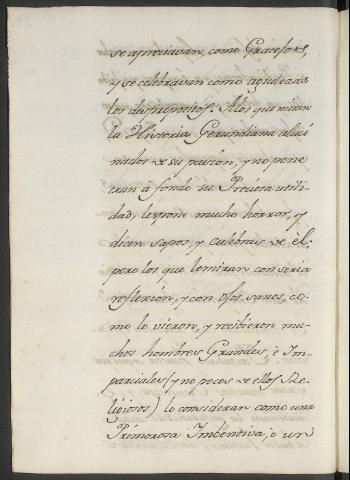 se apreciavan, como Gracejos,
y se celebravan como agudezas
los despropositos. A los que miran
la Historia Gerundiana aluci-
nados de su pasion, y no pene-
tran à fondo su Preciosa utili-
dad, les pone mucho horror, y
dicen sapos, y culebras de èl;
pero los que le miran con seria
reflexion, y con ojos sanos, co-
mo lo vieron, y recibieron mu-
chos hombres Grandes, è Im-
parciales (y no pocos de ellos Re-
ligiosos) lo consideran como una
Primorosa Imbentiva, o un